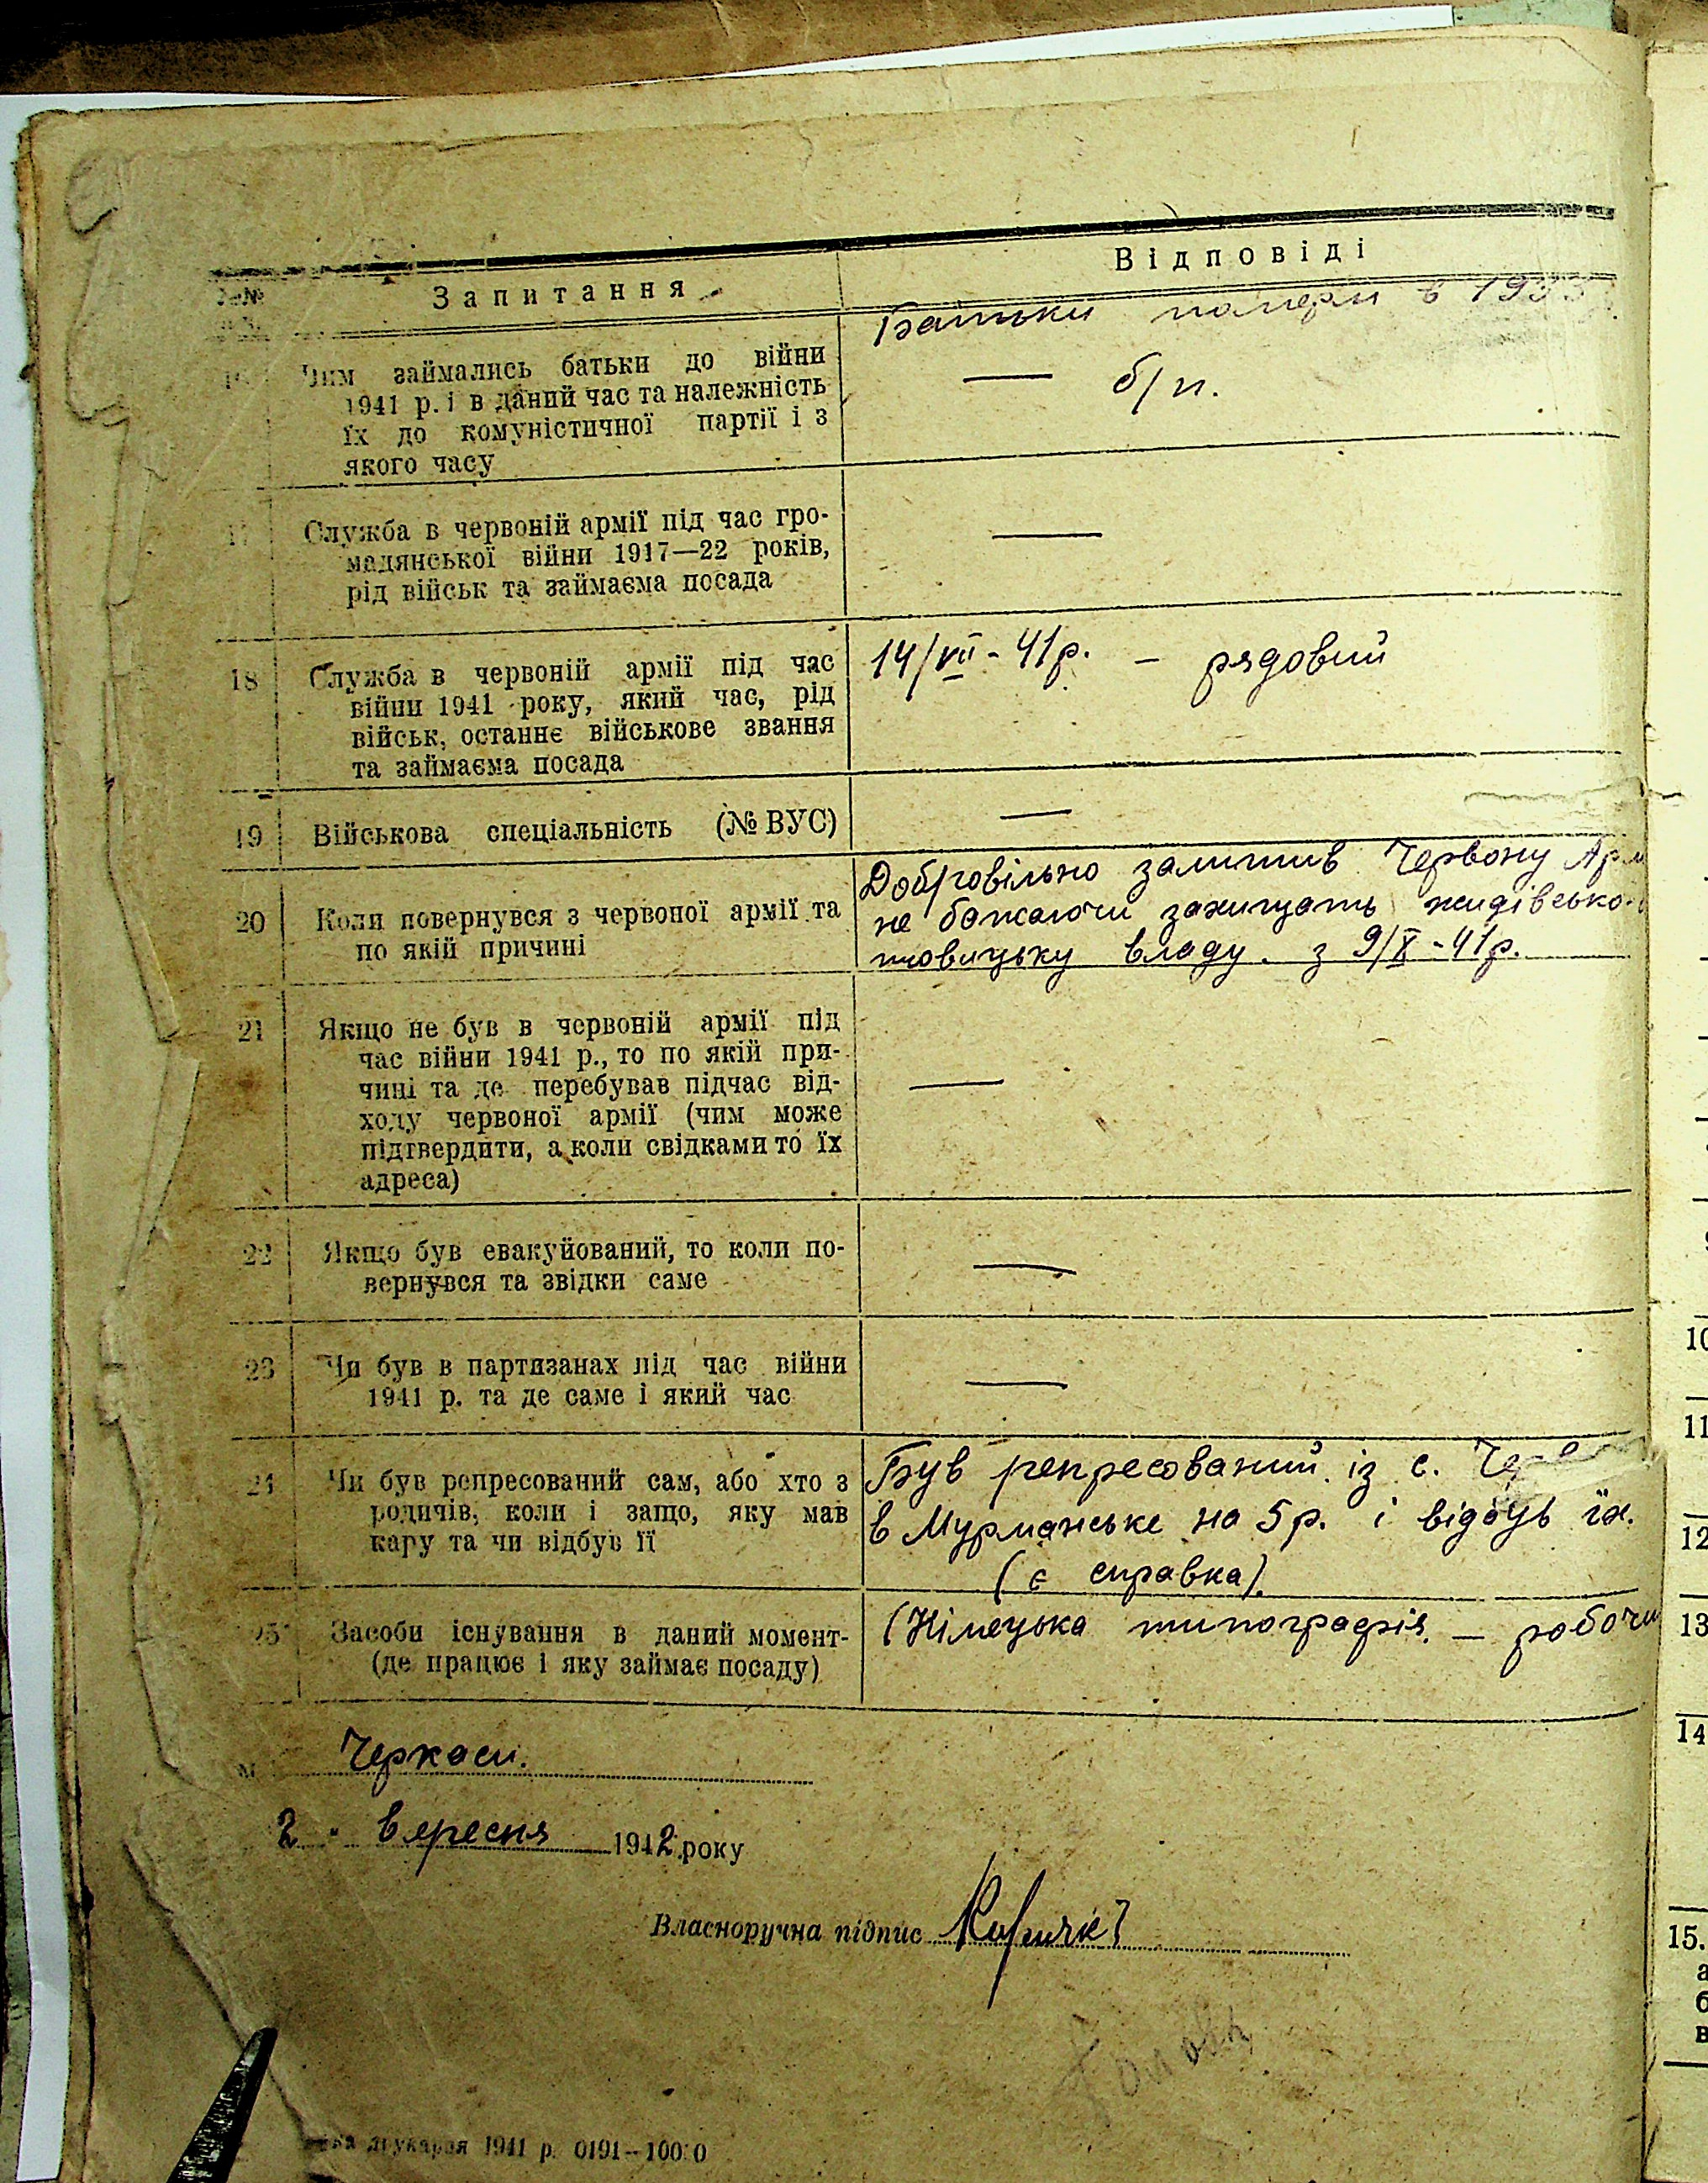 №№
Запитання
Відповіді
Чим займались батьки до війни
1941 р. і в даний час та належність
їх до комуністичної партії і з
якого часу
Батьки померли в 1933
— б/п.
17
Служба в червоній армії під час гро-
мадянської війни 1917—22 років,
рід військ та займаєма посада
—
18
Служба в червоній армії під час
війни 1941 року, який час, рід
військ, останнє військове звання
та займаєма посада
14/VII - 41р. — рядовий
19
Військова спеціальність (№ ВУС)
—
20
Коли повернувся з червоної армії та
по якій причині
Добровільно залишив Червону Арм
не бажаючи захищать жидівсько-
шовицьку владу. з 9/X - 41р.
21
Якщо не був в червоній армії під
час війни 1941 р., то по якій при-
чині та де перебував підчас від-
ходу червоної армії (чим може
підтвердити, а коли свідками то їх
адреса)
—
22
Якщо був евакуйований, то коли по-
вернувся та звідки саме
—
23
Чи був в партизанах під час війни
1941 р. та де саме і який час
—
24
Чи був репресований сам, або хто з
родичів, коли і защо, яку мав
кару та чи відбув її
Був репресований із с.
в Мурманське на 5 р. і відбув їх.
(є справка).
25
Засоби існування в даний момент-
(де працює і яку займає посаду)
(Німецька типографія. — робочи
м Черкаси.
2 " вересня 1942 року
Власноручна підпис
друкарня 1941 р. 0191—10000
10
11
12
13
14
15.
а
б
в